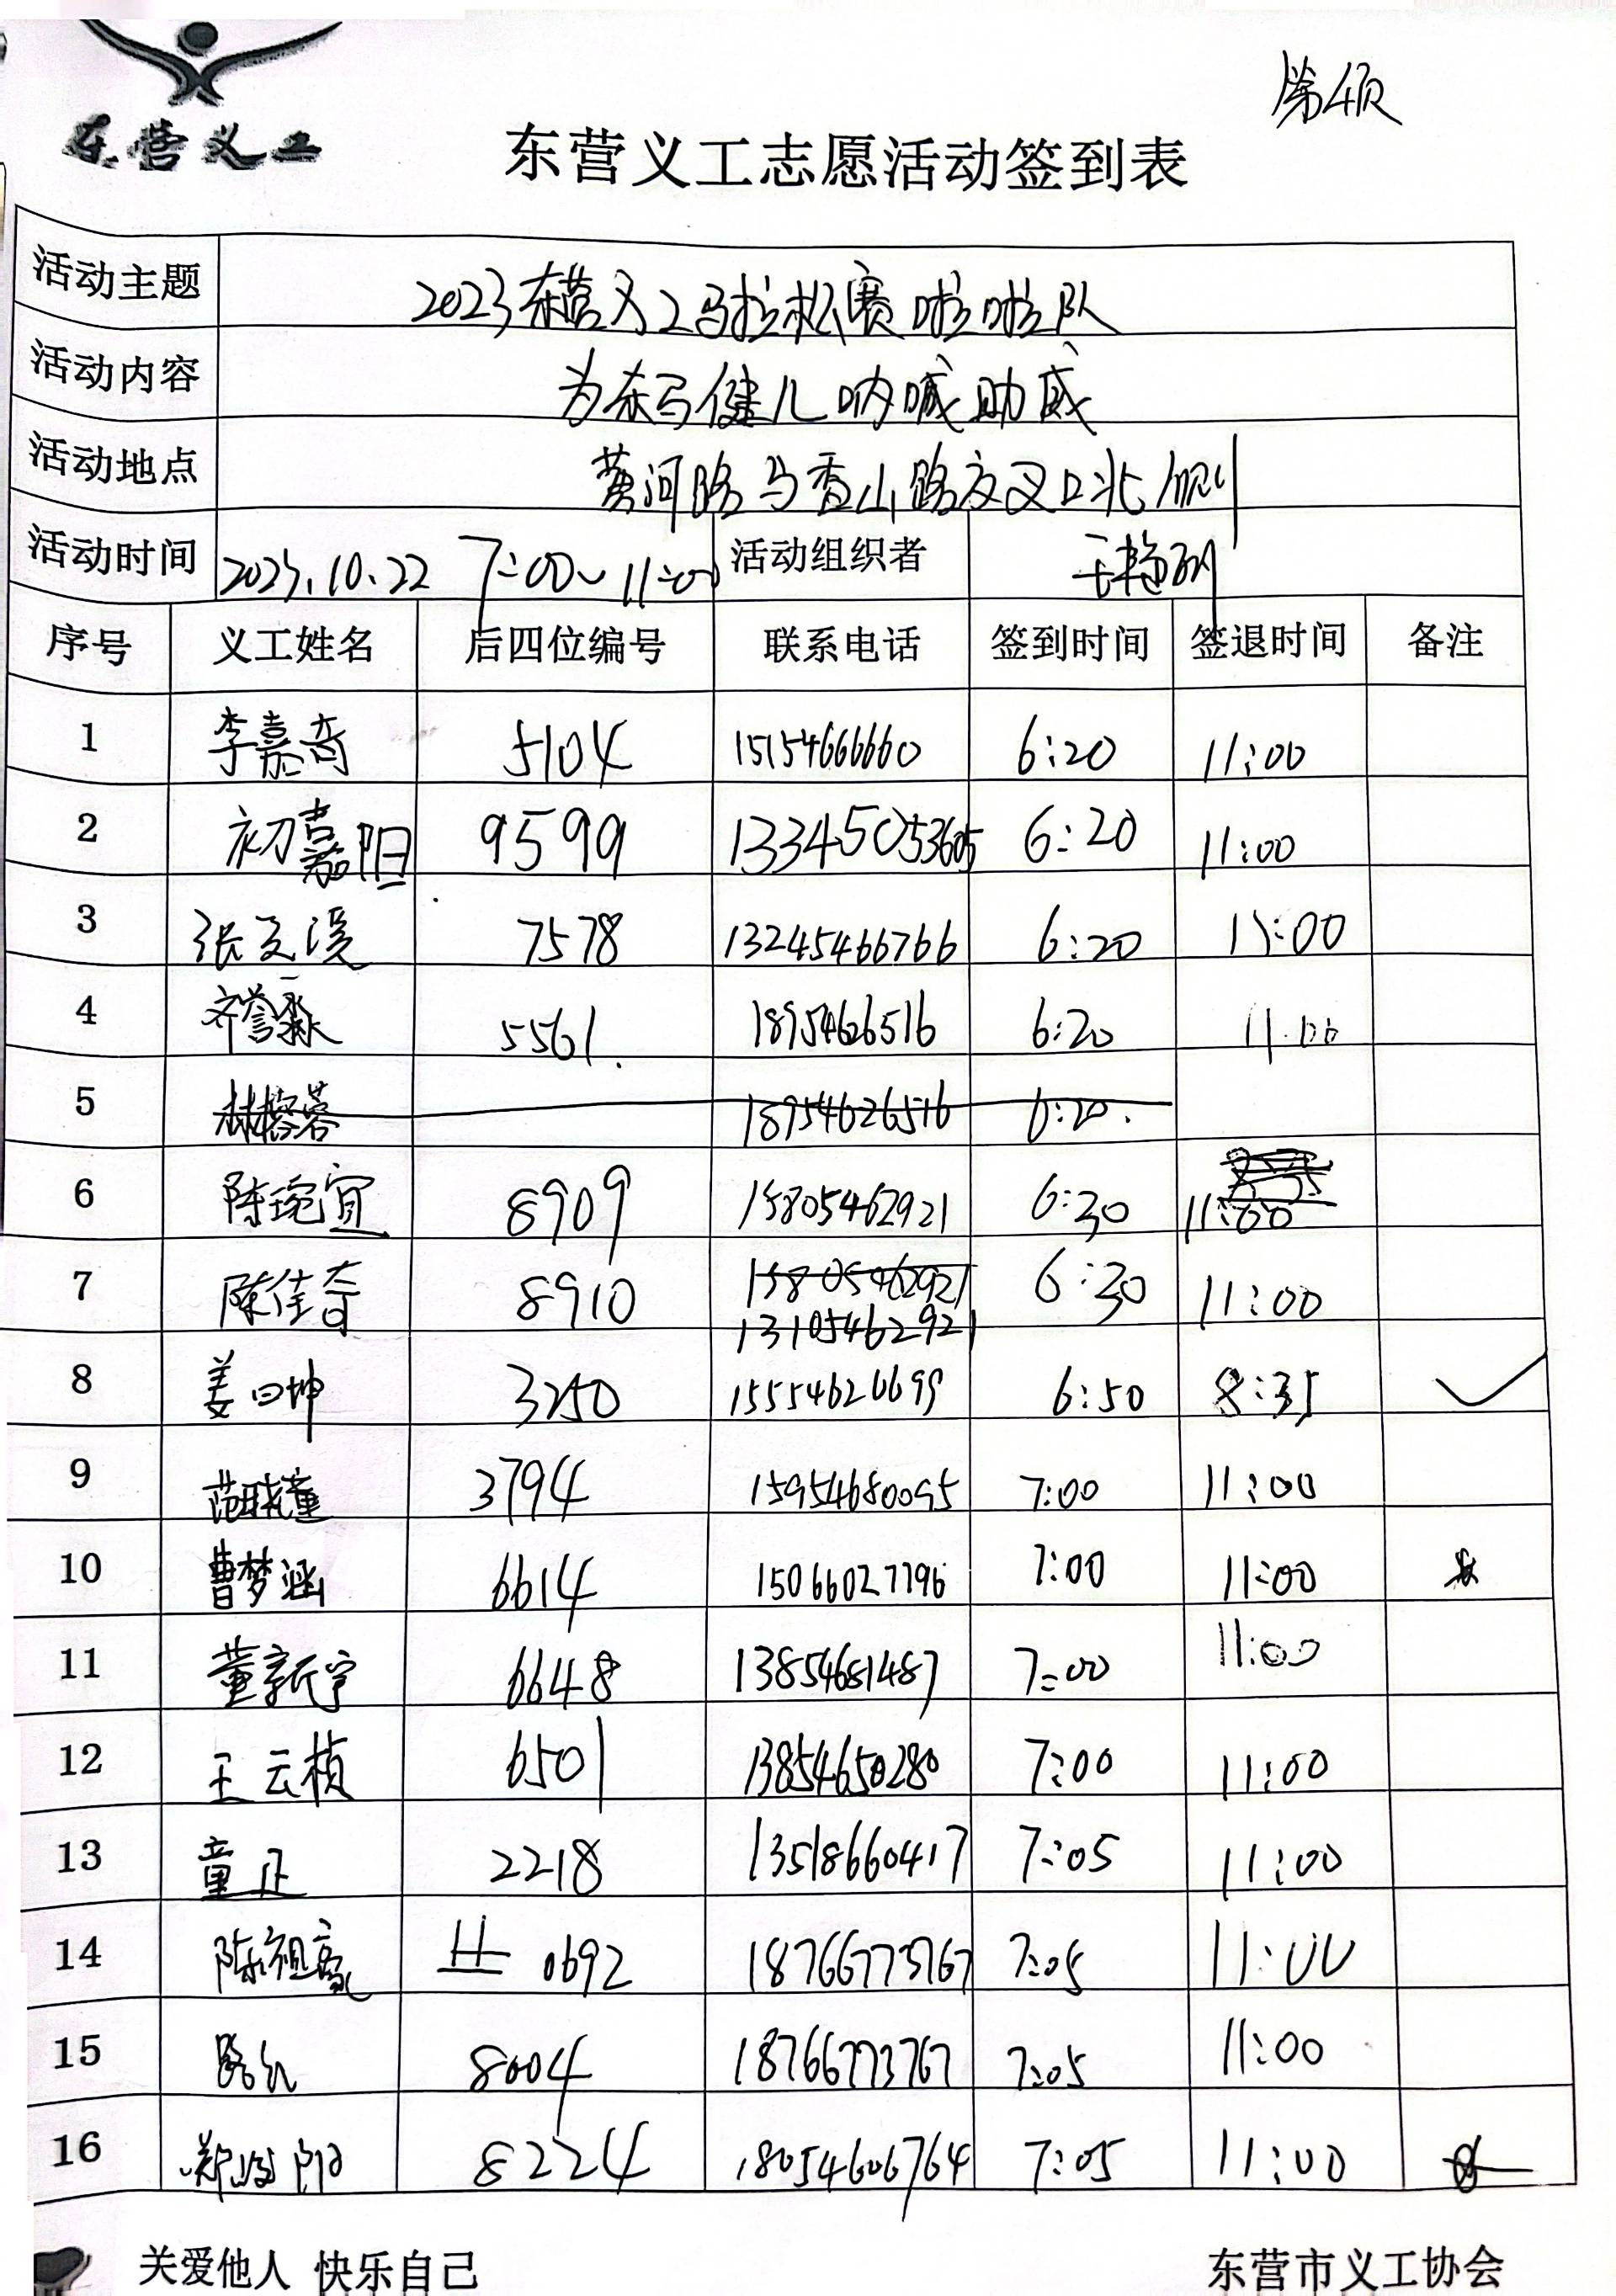 第4页
东营义工
东营义工志愿活动签到表
活动主题 2023东营义工马拉松赛啦啦队
活动内容 为东马健儿呐喊助威
活动地点 黄河路与香山路交叉口北侧
活动时间 2023.10.22 7:00~11:00 活动组织者 王艳丽
序号 义工姓名 后四位编号 联系电话 签到时间 签退时间 备注
1 李嘉奇 5104 15154666660 6:20 11:00
2 初嘉阳 9599 13345053605 6:20 11:00
3 7578 13245466766 6:20 11:00
4 齐誉淼 5561 18954626516 6:20 11:00
5 林榕蓉 18954626516 6:20
6 陈琬宜 8909 15805462921 6:30 11:00
7 陈佳奇 8910 15805462921 6:30 11:00
13105462921
8 姜曰坤 3250 15554626699 6:50 8:35
9 范晓童 3794 15954680095 7:00 11:00
10 曹梦涵 6614 15066027796 7:00 11:00
11 董新宇 6648 13854681487 7:00 11:00
12 王云桢 6501 13854650280 7:00 11:00
13 童正 2218 13518660417 7:05 11:00
14 陈祖赢 0692 18766773767 7:05 11:00
15 路红 8004 18766773767 7:05 11:00
16 8224 18054606764 7:05 11:00
关爱他人 快乐自己 东营市义工协会